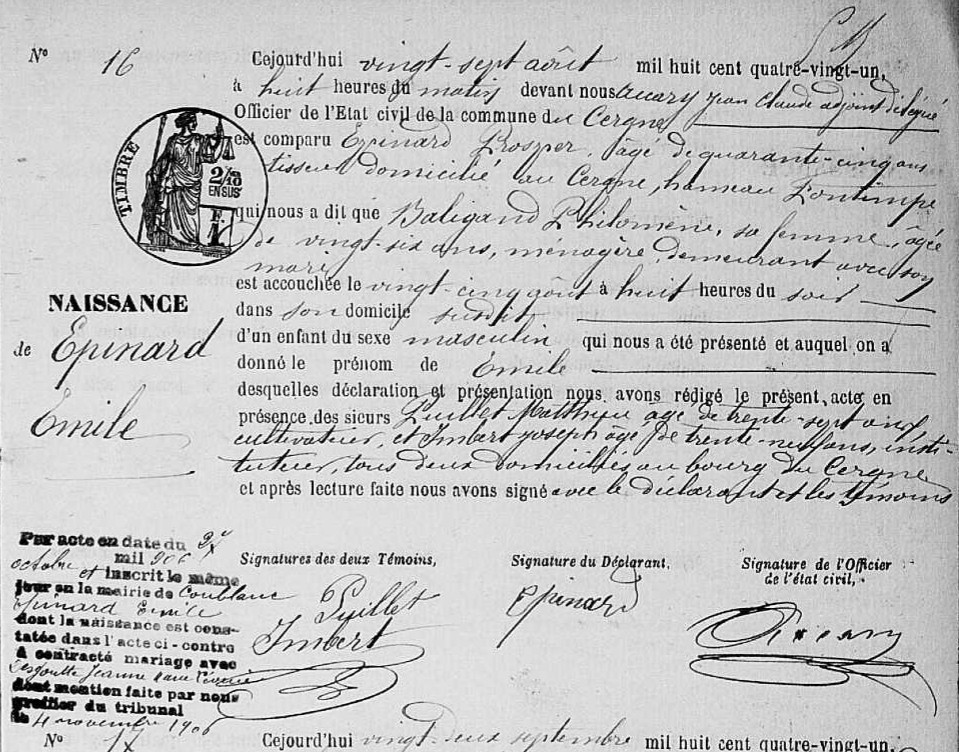 N° 16
Cejourd'hui vingt-sept août mil huit cent quatre-vingt-un,
à huit heures du matin devant nous Jean Claude adjoint délégué
Officier de l'Etat civil de la commune du Cergne
est comparu Epinard Prosper, âgé de quarante-cinq ans
tisseur domicilié au Cergne, hameau
qui nous a dit que Baligand Philomène, sa femme, âgée
de vingt-six ans, ménagère, demeurant avec son
mari
est accouchée le vingt-cinq août à huit heures du soir
dans son domicile susdit
d'un enfant du sexe masculin qui nous a été présenté et auquel on a
donné le prénom de Emile
desquelles déclaration et présentation nous avons rédigé le présent acte en
présence des sieurs Puillet Matthieu âgé de trente-sept ans
cultivateur, et Imbert Joseph âgé de trente-neuf ans, insti-
tuteur, tous deux domiciliés au bourg du Cergne
et après lecture faite nous avons signé avec le déclarant et les témoins
TIMBRE
2/10
EN SUS
NAISSANCE
de Epinard
Emile
Signatures des deux Témoins,
Puillet
Imbert
Signature du Déclarant,
Epinard
Signature de l'Officier
de l'état civil,
Par acte en date du 27
octobre mil 906
et inscrit le même
jour en la mairie de Coublanc
Epinard Emile
dont la naissance est cons-
tatée dans l'acte ci-contre
a contracté mariage avec
Jeanne
dont mention faite par nous
greffier du tribunal
le 4 novembre 1906
N° 17
Cejourd'hui vingt-deux septembre mil huit cent quatre-vingt-un,